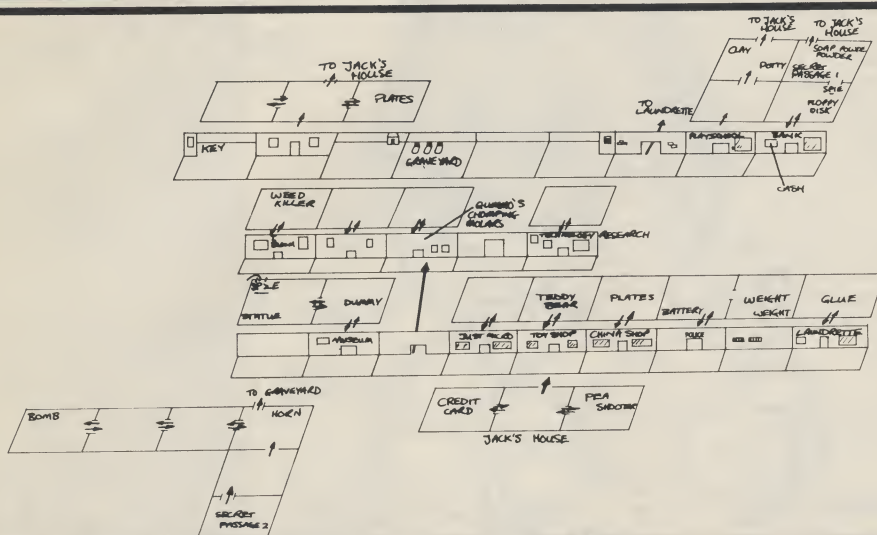 TO JACK'S
HOUSE
TO JACK'S
HOUSE
CLAY
SOAP POWER
POWDER
POTTY
SECRET
PASSAGE 1
FLOPPY
DISK
TO JACK'S
HOUSE
PLATES
TO
LAUNDRETTE
KEY
GRAVEYARD
PLAYSCHOOL
BANK
CASH
WEED
KILLER
QUADRO'S
CHOMPING
MOLARS
TECHNOLOGY RESEARCH
STATUE
DUMMY
TEDDY
BEAR
PLATES
BATTERY
WEIGHT
WEIGHT
GLUE
MUSEUM
JUST MICRO
TOY SHOP
CHINA SHOP
POLICE
LAUNDRETTE
CREDIT
CARD
PEA
SHOOTER
JACK'S HOUSE
TO GRAVEYARD
BOMB
HORN
SECRET
PASSAGE 2